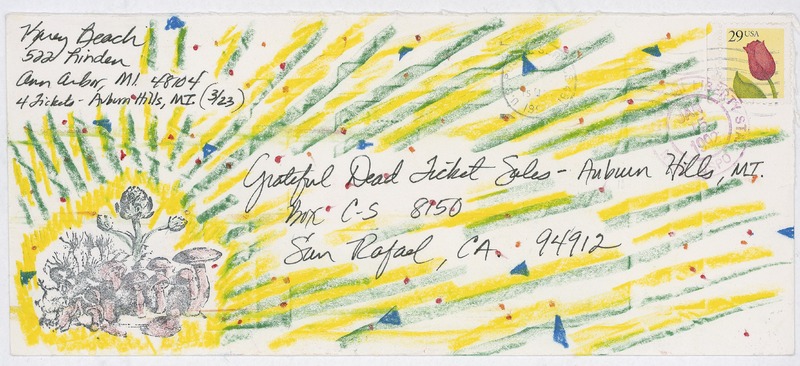 Beach
522 Linden
Ann Arbor, MI. 48104
4 Tickets - Auburn Hills, MI. (3/23)
29 USA
Grateful Dead Ticket Sales - Auburn Hills, MI.
Box C-S 8150
San Rafael, CA. 94912